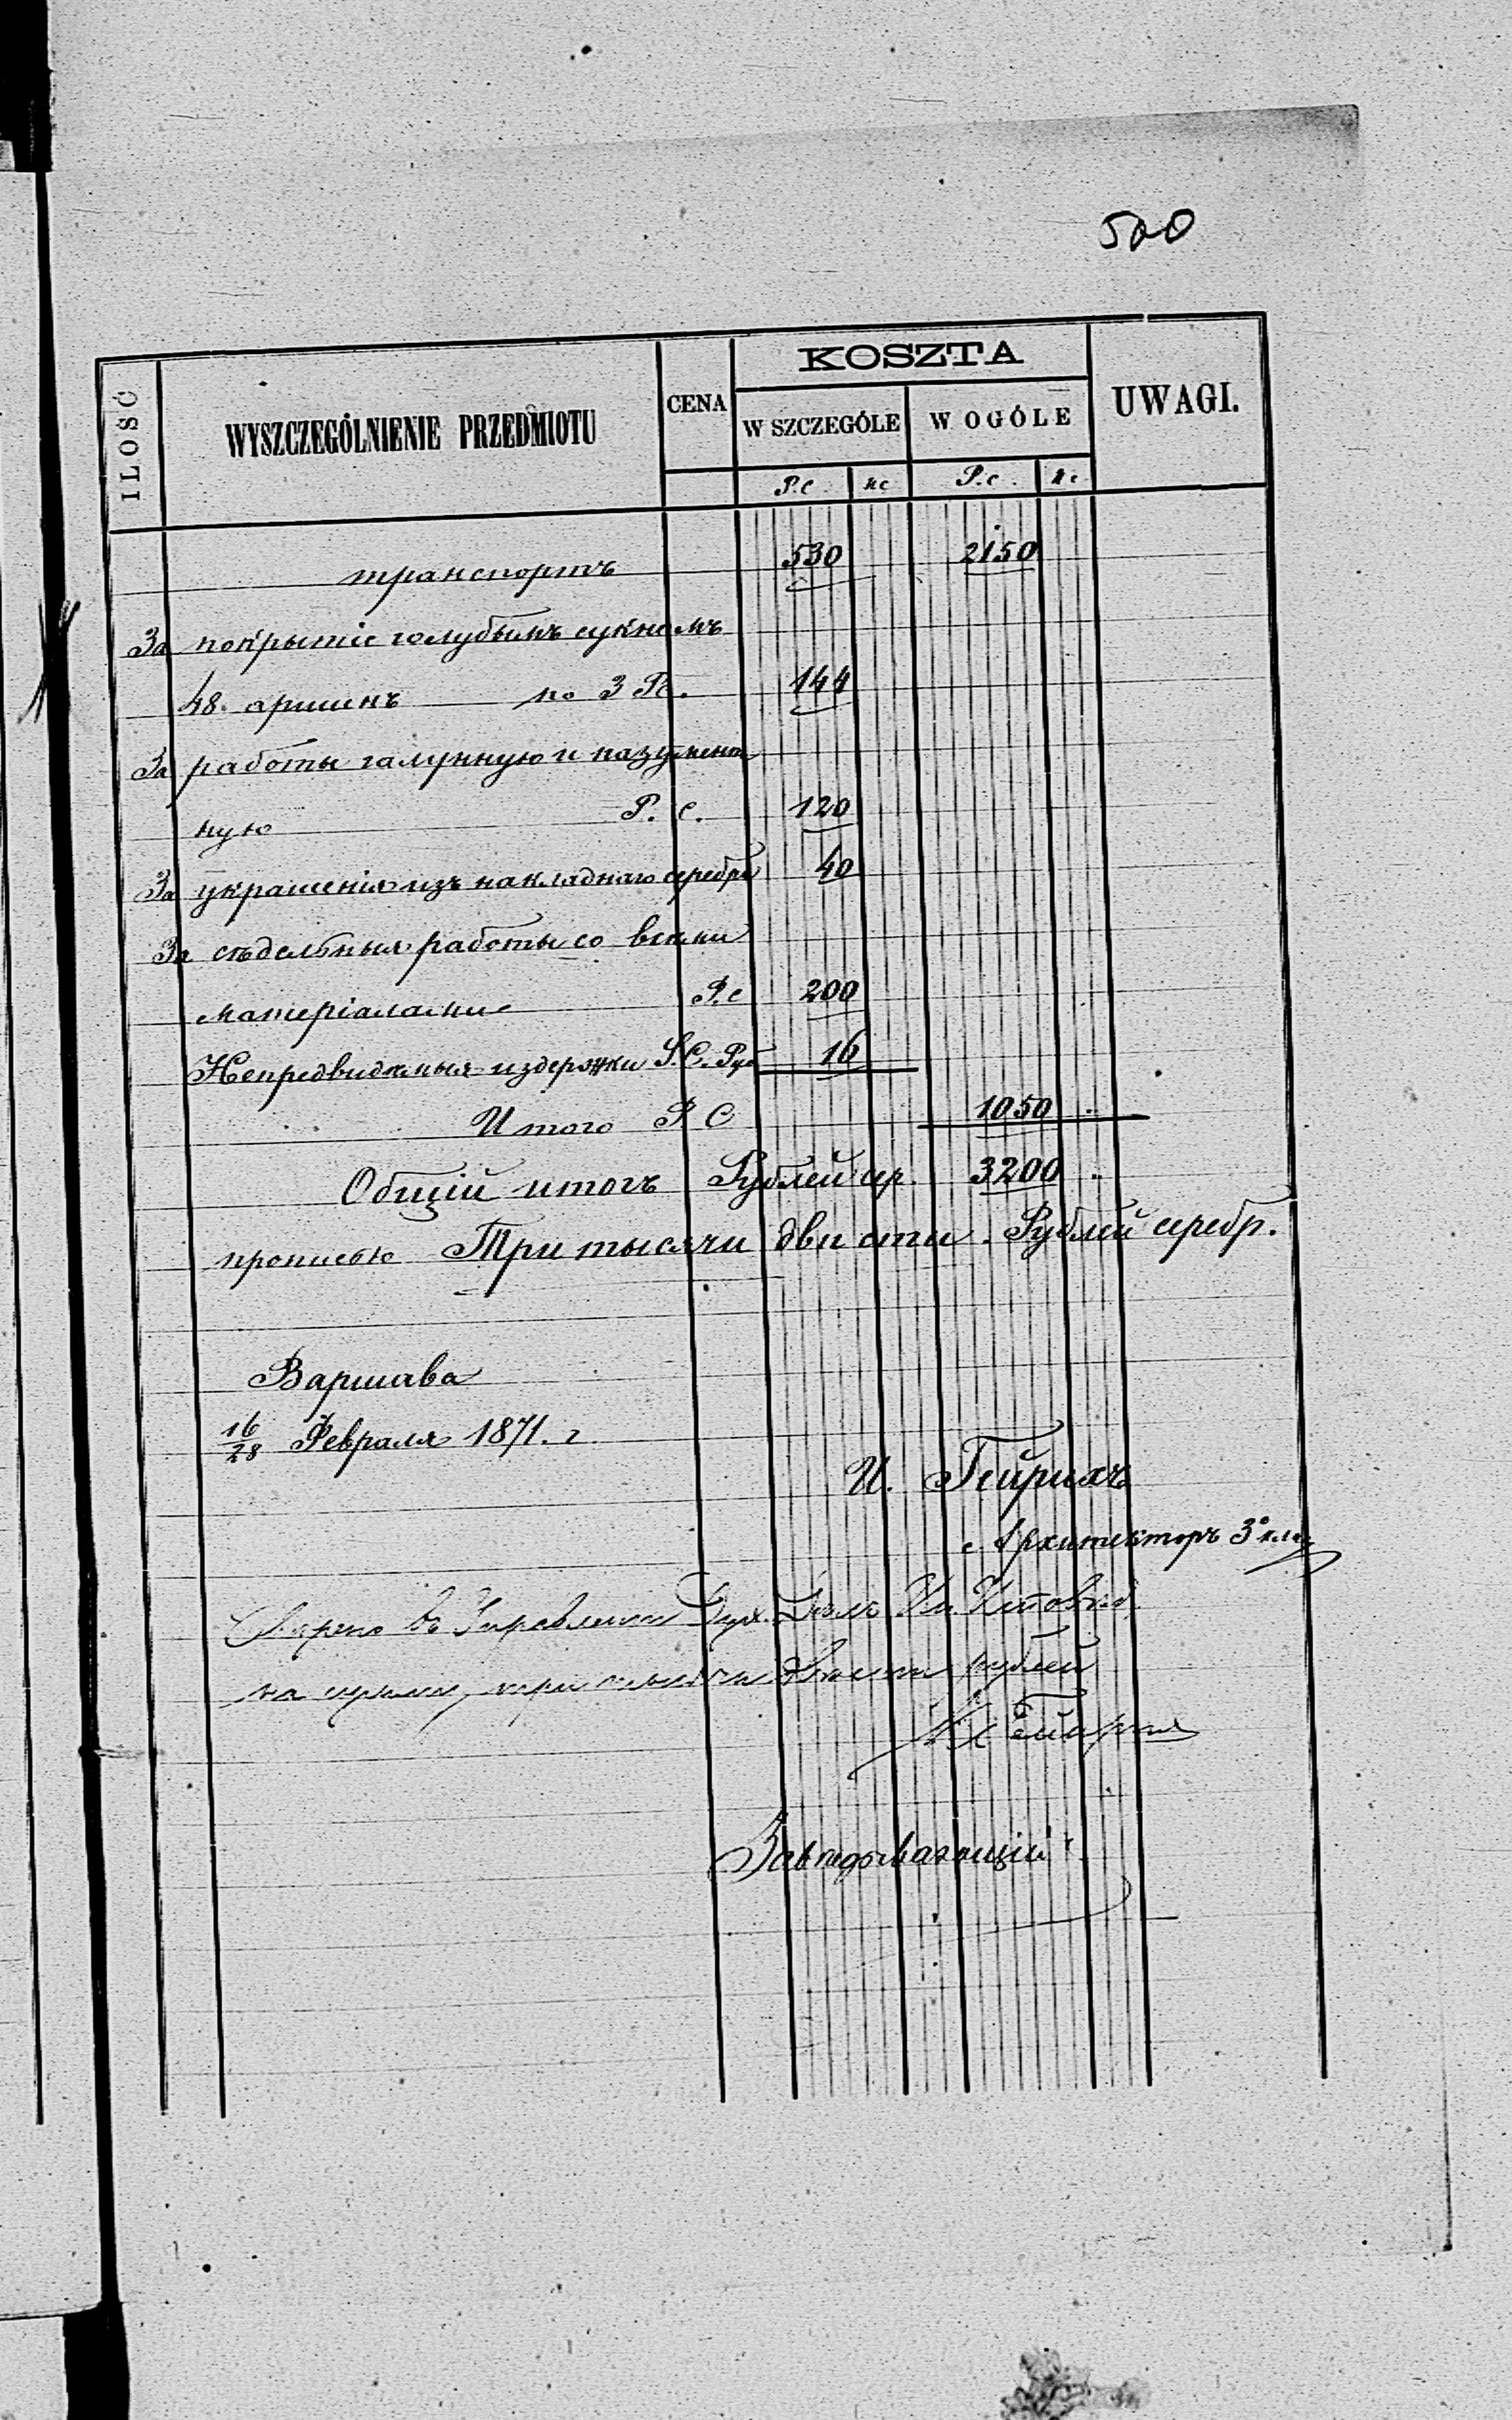 500
ILOŚĆ WYSZCZEGÓLNIENIE PRZEDMIOTU CENA KOSZTA UWAGI.
W SZCZEGÓLE W OGÓLE
Р.с. кс Р.с. кс
транспортъ 530 2150
За покрытіе голубымъ сукномъ
48 аршинъ по 3 Рс. 144
За работы галунную и позумент
ную Р. С. 120
За украшенія изъ накладнаго серебра 40
За сѣдельныя работы со всѣми
матеріалами Р.с 200
Непредвидимыя издержки S.C. Руб 16
Итого Р С 1050
Общій итогъ Рублей сер. 3200
прописью Три тысячи двѣсти. Рублей серебр.
Варшава
16/28 Февраля 1871. г
И. Гейрихъ
Архитекторъ 3º клас
въ Управленіи Дух. Дѣлъ Ин. Исповѣд.
на сумму три тысячи двѣсти рублей
Завѣдывающій